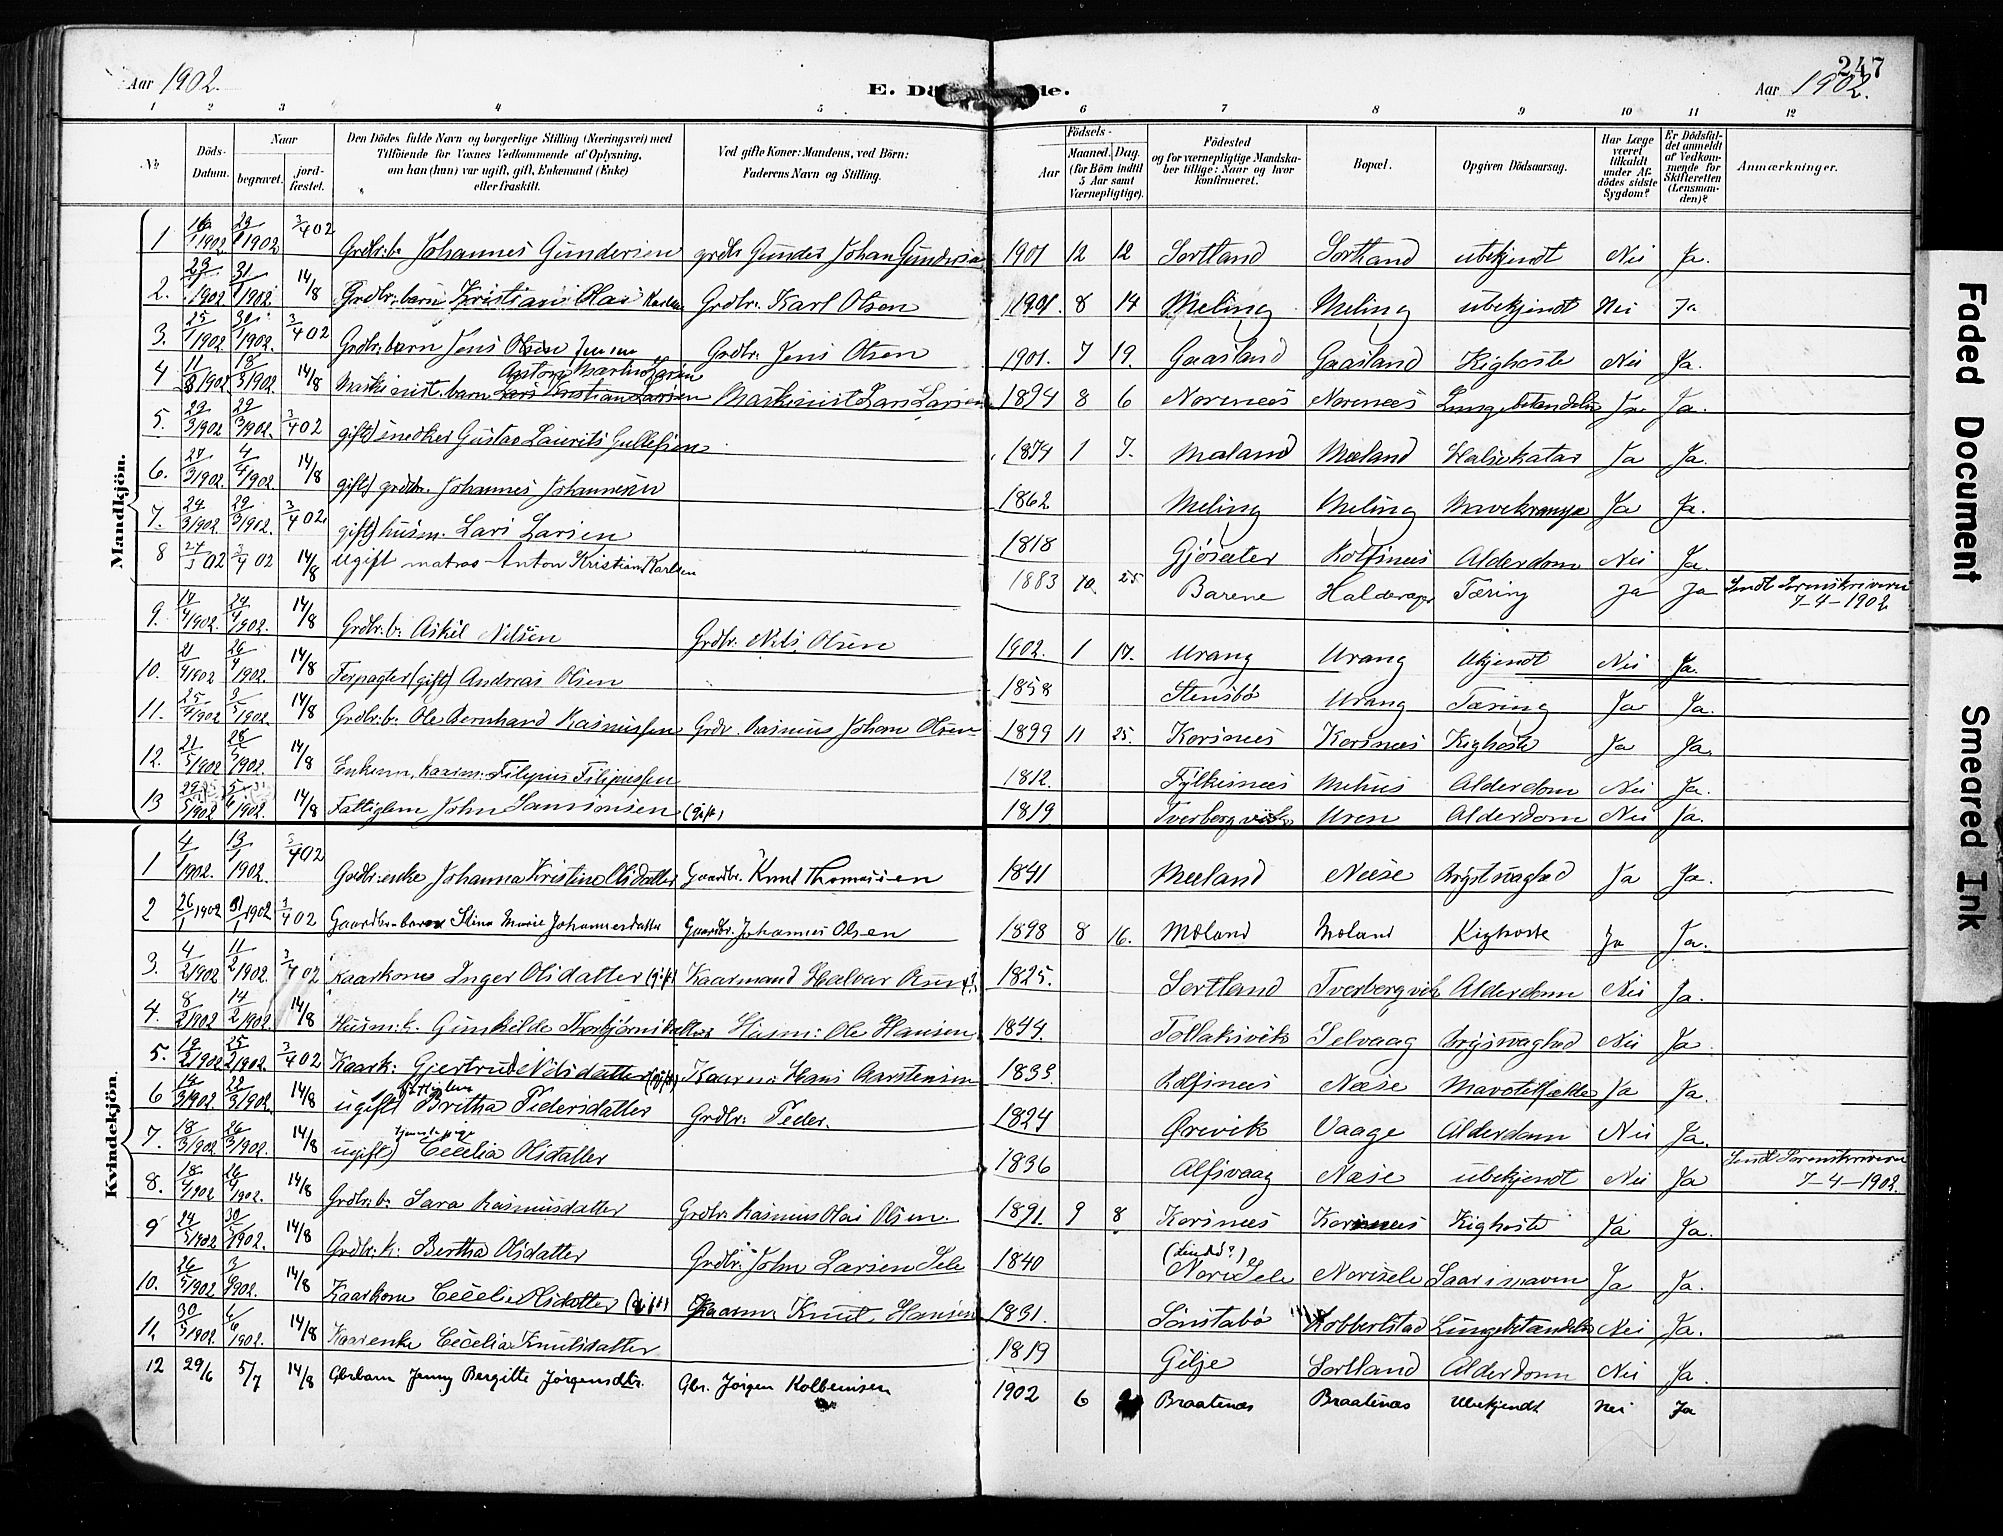 247
Aar 1902.
E. Dö de.
Aar 1902.
1 2 3 4 5 6 7 8 9 10 11 12
№
Döds-Datum.
Naar
begravet.
jord-fæstet.
Den Dödes fulde Navn og borgerlige Stilling (Næringsvei) med
Tilföiende for Voxnes Vedkommende af Oplysning,
om han (hun) var ugift, gift, Enkemand (Enke)
eller fraskilt.
Ved gifte Koner: Mandens, ved Börn:
Faderens Navn og Stilling.
Födsels-
Aar
Maaned. Dag.
(for Börn indtil
5 Aar samt
Værnepligtige).
Födested
og for værnepligtige Mandska-
ber tillige: Naar og hvor
konfirmeret.
Bopæl.
Opgiven Dödsaarsag.
Har Læge
været
tilkaldt
under Af-
dödes sidste
Sygdom?
Er Dödsfal-
det anmeldt
af Vedkom-
mende for
Skifteretten
(Lensman-
den)?
Anmærkninger.
Mandkjön.
1 16/1 1902 29/1 1902 3/4 02 Grdbr: b. Johannes Gundersen grdbr Gunder Johan Gundersen 1901 12 12 Sortland Sortland ubekjendt Nei Ja.
2. 29/1 1902 31/1 1902. 14/8 Grdbr: barn Kristian Olai Karlsen Grdbr: Karl Olsen 1901 8 14 Meling Meling ubekjendt Nei Ja
3. 25/1 1902 30/1 1902. 3/4 02 Grdbr: barn Jens Olsen Jensen Grdbr: Jens Olsen 1901. 7 19. Gaasland Gaasland Kighoste Nei Ja.
4 11/3 1902 18/3 1902. 14/8 Maskinist. barn Lars Kristian Larsen Maskinist Lars Larsen 1894 8 6 Norenæs Norenæs Lungebetændelse Ja Ja.
5. 23/3 1902 29/3 1902. 3/4 02 gift) snedker Gustav Laurits Gullessen 1874 1 7. Mæland Mæland Halsekatar Ja Ja.
6. 27/3 1902. 4/4 1902. 14/8 gift) grdbr. Johannes Johannesen 1862 Meling Meling Mavekrampe Ja Ja.
7. 24/3 1902. 29/3 1902. 3/4 02. gift) husm. Lars Larsen 1818 Gjøsæter Rolfsnæs Alderdom Nei Ja.
8 27/3 02 3/4 02 14/8 Ugift matros Anton Kristian Karlsen 1883 10 25 Barene Halderager Tæring Ja Ja Sendt Sorenskriveren
7-4-1902
9. 14/4 1902. 24/4 1902. 14/8 Grdbr: b: Askil Nilsen Grdbr: Nils Olsen 1902. 1 17. Urang Urang Ukjendt Nei Ja.
10. 21/4 1902 26/4 1902. 14/8 Forpagter (gift) Andreas Olsen 1858 Stensbø Urang Tæring Ja Ja.
11. 25/4 1902 3/5 1902. 14/8 Grdbr: b: Ole Bernhard Rasmussen Grdr. Rasmus Johan Olsen 1899 11 25. Korsnæs Korsnæs Kighoste Ja Ja.
12. 21/5 1902 28/5 1902. 14/8 Enkem. Kaarm: Filipus Filipussen 1812. Fylkesnæs Mehus Alderdom Nei Ja.
13 29/5 1902 5/6 1902. 14/8 Fattiglem John Samsonsen (gift) 1819 Tverbergvik Uren Alderdom Nei Ja.
Kvindekjön.
1 4/1 1902. 13/1 1902. 3/4 02 Grdbr: enke Johanna Kristine Olsdatter Gaardbr. Knut Thomassen 1841 Mæland Næse Brystsvaghed Ja Ja.
2 26/1 1902 31/1 1902 3/4 02 Gaardbr-barn Stina Marie Johannesdatter Gaardbr. Johannes Olsen 1898 8 16. Mæland Mæland Kighoste Ja Ja.
3. 4/2 1902 11/2 1902. 3/4 02 Kaarkone Inger Olsdatter (gift) Kaarmand Halvar 1825. Sortland Tverbergvik Alderdom Nei Ja.
4. 8/2 1902 14/2 1902. 14/8 Husm: k. Gunhilde Thorbjørnsdatter Husm: Ole Hansen 1844. Tollaksvik Selvaag Brystsvaghed Nei Ja.
5. 19/2 1902 25/2 1902. 3/4 02 Kaark: Gjertrud Nilsdatter (gift) Kaarm: Hans Karstensen 1833. Rolfsnæs Næse Mavetilfælde Ja Ja.
6 14/3 1902. 22/3 1902. 14/8 ugift) fattiglem Britha Pedersdatter Grdbr: Peder. 1824 Ørevik Vaage Alderdom Nei Ja.
7. 18/3 1902. 26/3 1902. 14/8 ugift) tjenestepige Cecelia Olsdatter 1836 Alfsvaag Næse ubekjendt Nei Ja Sendt Sorenskriveren
7-4-1902.
8. 18/4 1902. 26/4 1902. 14/8 Grdbr: b: Sara Rasmusdatter Grdbr: Rasmus Olai Olsen. 1891. 9 8 Korsnæs Korsnæs Kighoste Ja Ja.
9 24/5 1902 30/5 1902. 14/8 Grdbr: k: Bertha Olsdatter Grdbr: John Larsen Sele 1840 Nore Sele Noresele Saar i maven Ja Ja.
10. 26/5 1902 3/6 1902. 14/8 Kaarkone Cecelie Olsdatter (gift) Kaarm. Knut Hansen 1831. Sønstabø Kobbelstad Lungebetændelse Nei Ja.
11. 30/5 1902. 6/6 1902. 14/8 Kaarenke Cecelia Knutsdatter 1819 Gilje Sortland Alderdom Nei Ja.
12 29/6 5/7 14/8 Gbrbarn Jenny Bergitte Jørgensdtr. Gbr. Jørgen Kolbensen 1902 6 Braatenæs Braatenæs Ubekjendt Nei Ja
Faded Document
Smeared Ink